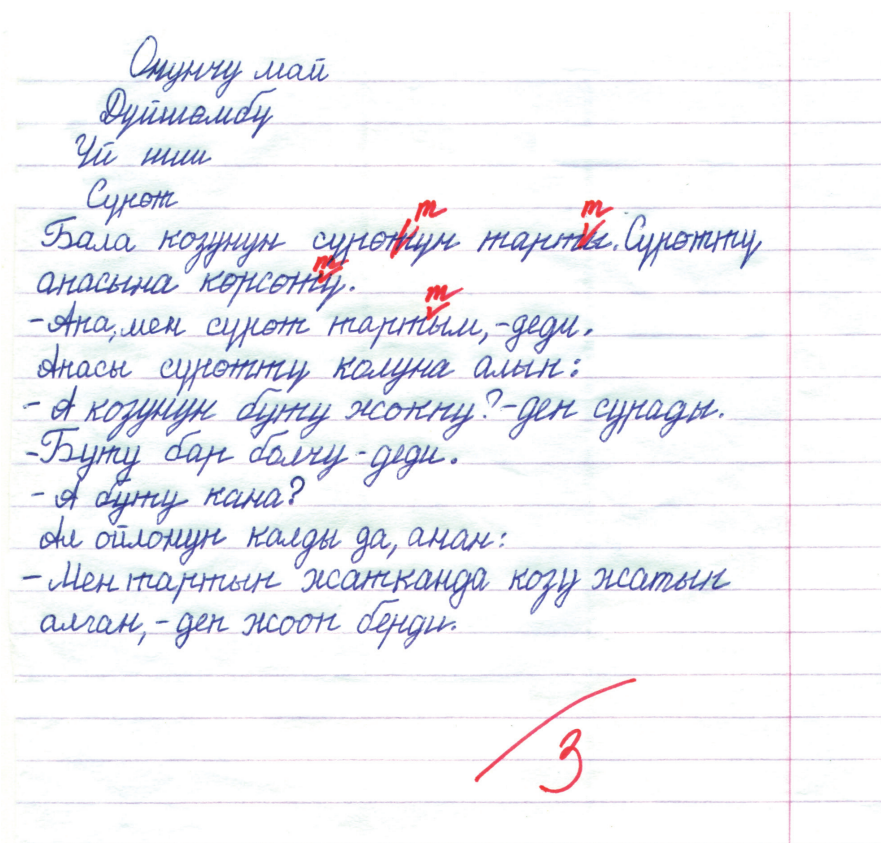 Онунчу май
Дүйшөмбү
Үй иши
Сүрөт
т т
Бала козунун сүрөтүн тарты. Сүрөттү
т
анасына көрсөтү.
т
- Апа, мен сүрөт тартым, - деди.
Апасы сүрөттү колуна алып:
- А козунун буту жокпу? - деп сурады.
- Буту бар болчу - деди.
- А буту кана?
Ал ойлонуп калды да, анан:
- Мен тартып жатканда козу жатып
алган, - деп жооп берди.
3